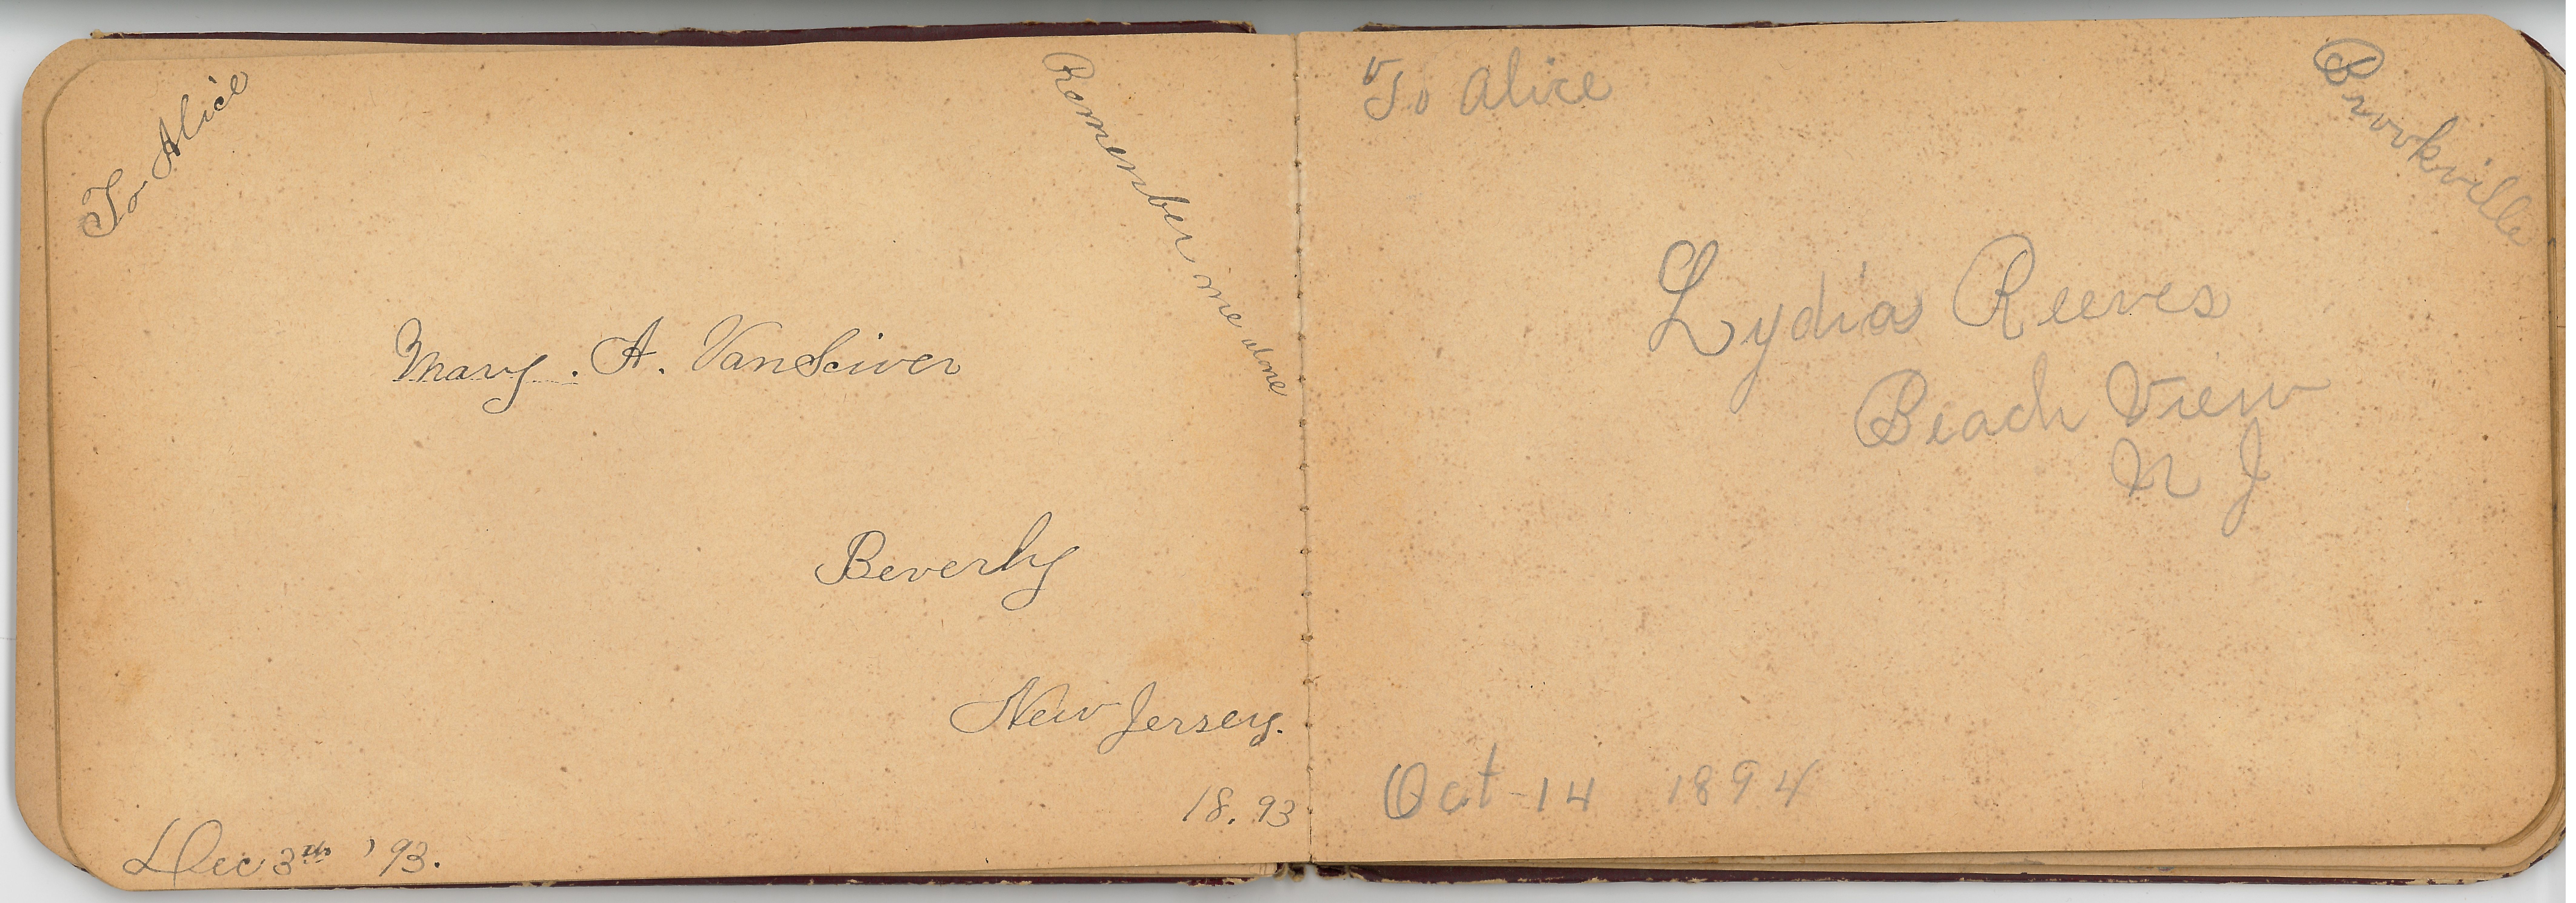 To Alice
Remember me alone
Mary. A. VanSciver
Beverly
New Jersey.
18.93
Dec 3th '93.
To Alice
Brookville
Lydia Reeves
Beach View
N J
Oct 14 1894